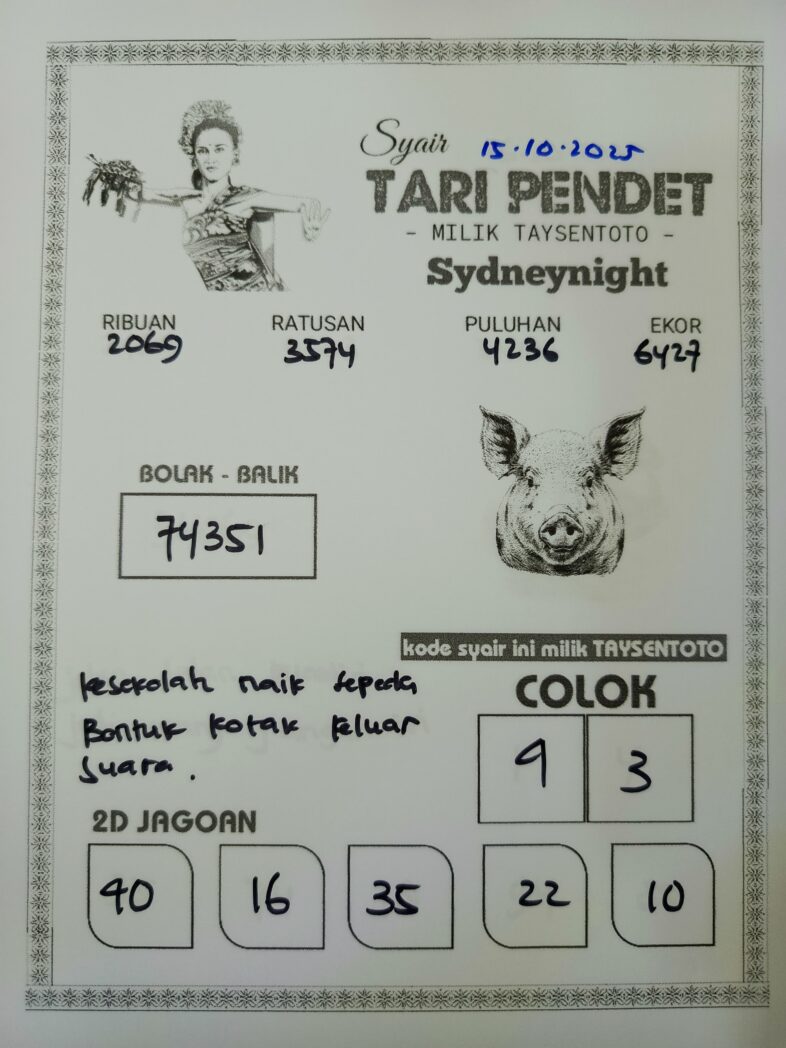 Syair 15.10.2025
TARI PENDET
- MILIK TAYSENTOTO -
Sydneynight
RIBUAN RATUSAN PULUHAN EKOR
2069 3574 4236 6427
BOLAK - BALIK
74351
kode syair ini milik TAYSENTOTO
kesekolah naik sepeda
Bentuk kotak keluar
suara.
COLOK
9 3
2D JAGOAN
40 16 35 22 10